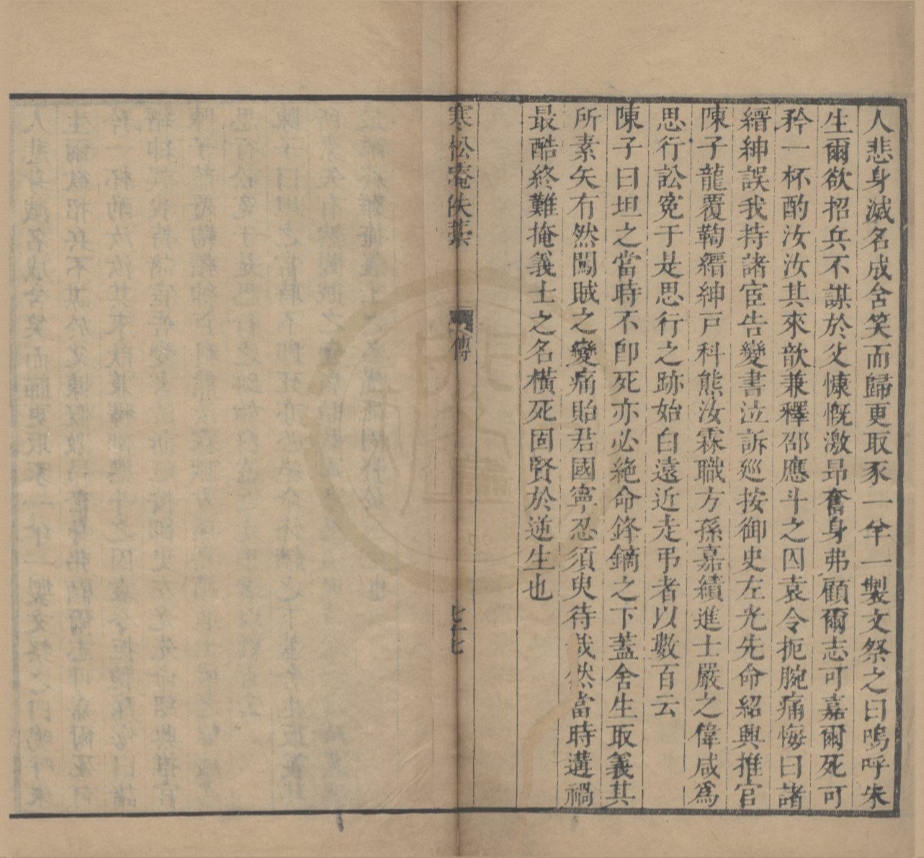 人悲身滅名成含笑而歸更取豕一羊一製文祭之曰嗚呼朱
生爾欲招兵不謀於父慷慨激昂奮身弗顧爾志可嘉爾死可
矜一杯酌汝汝其來歆兼釋邵應斗之囚袁令扼腕痛悔曰諸
縉紳誤我持諸宦告變書泣訴巡按御史左光先命紹興推官
陳子龍覆鞫縉紳戸科熊汝霖職方孫嘉績進士嚴之偉咸爲
思行訟冤于是思行之跡始白遠近走弔者以數百云
陳子曰坦之當時不卽死亦必絶命鋒鏑之下蓋舍生取義其
所素矢有然闖賊之變痛貽君國寧忍須臾待哉然當時遘禍
最酷終難掩義士之名橫死固賢於逆生也
寒松菴佚藁
傳
七十七